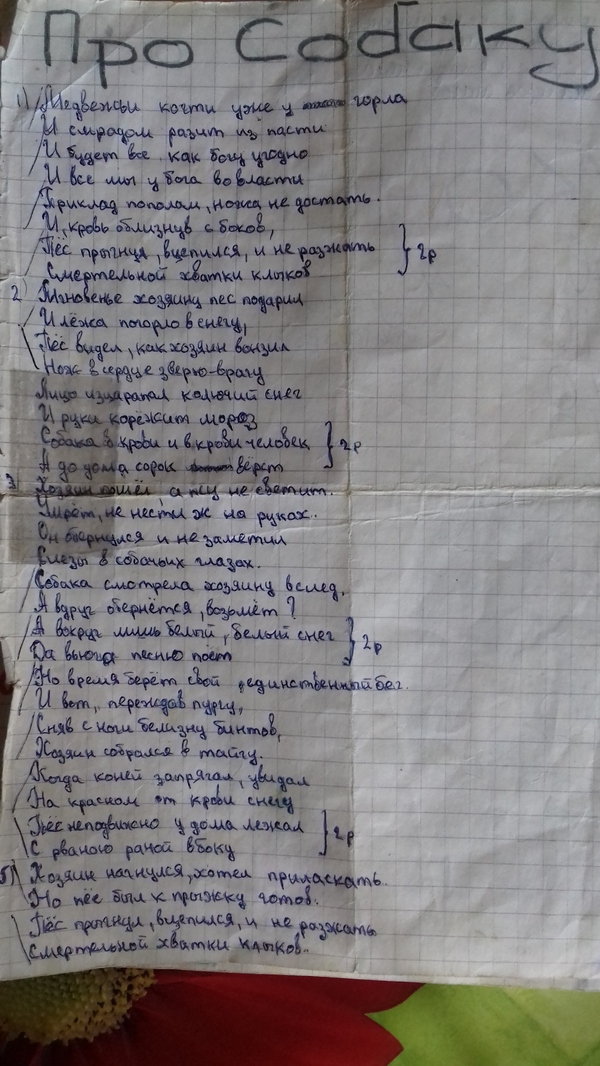 Про Собаку
1) Медвежьи когти уже у горла
И смрадом разит из пасти
И будет все как богу угодно
И все мы у бога во власти
Приклад пополам, ножа не достать.
И, кровь облизнув с боков,
Пёс прыгнул, вцепился, и не разжать
Смертельной хватки клыков } 2р
2) Мгновенье хозяину пес подарил
И лёжа по горло в снегу,
Пёс видел, как хозяин вонзил
Нож в сердце зверю-врагу
Лицо изцарапал колючий снег
И руки корёжит мороз
Собака в крови и в крови человек
А до дома сорок вёрст } 2р
3) Хозяин пошёл, а тку не светит.
Умрёт, не нести ж на руках..
Он обернулся и не заметил
Слезы в собачьих глазах.
Собака смотрела хозяину вслед,
А вдруг обернётся, возьмёт?
А вокруг лишь белый, белый снег
Да вьюга песню поёт } 2р
Но время берёт свой единственный бег.
И вот, переждав пургу,
Сняв с ноги белизну бинтов,
Хозяин собрался в тайгу.
Когда коней запрягал, увидал
На красном от крови снегу
Пёс неподвижно у дома лежал
С рваною раной в боку } 2р
5) Хозяин нагнулся, хотел приласкать.
Но пёс был к прыжку готов.
Пёс прыгнул, вцепился, и не разжать
Смертельной хватки клыков..